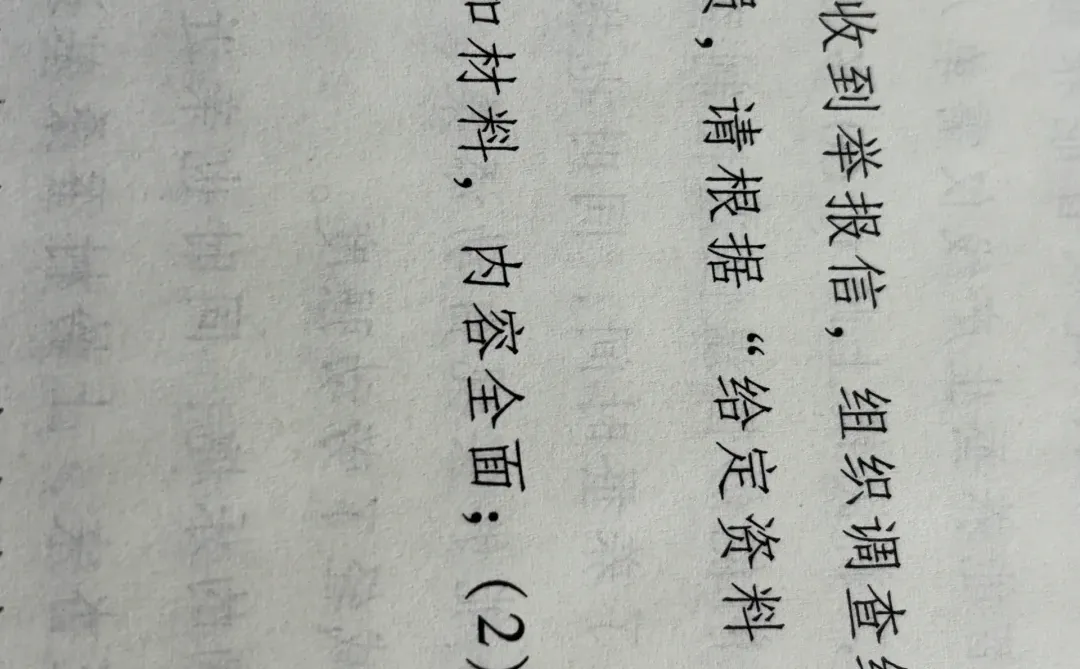 收到举报信，组织调查
，请根据“给定资料
材料，内容全面；（2）